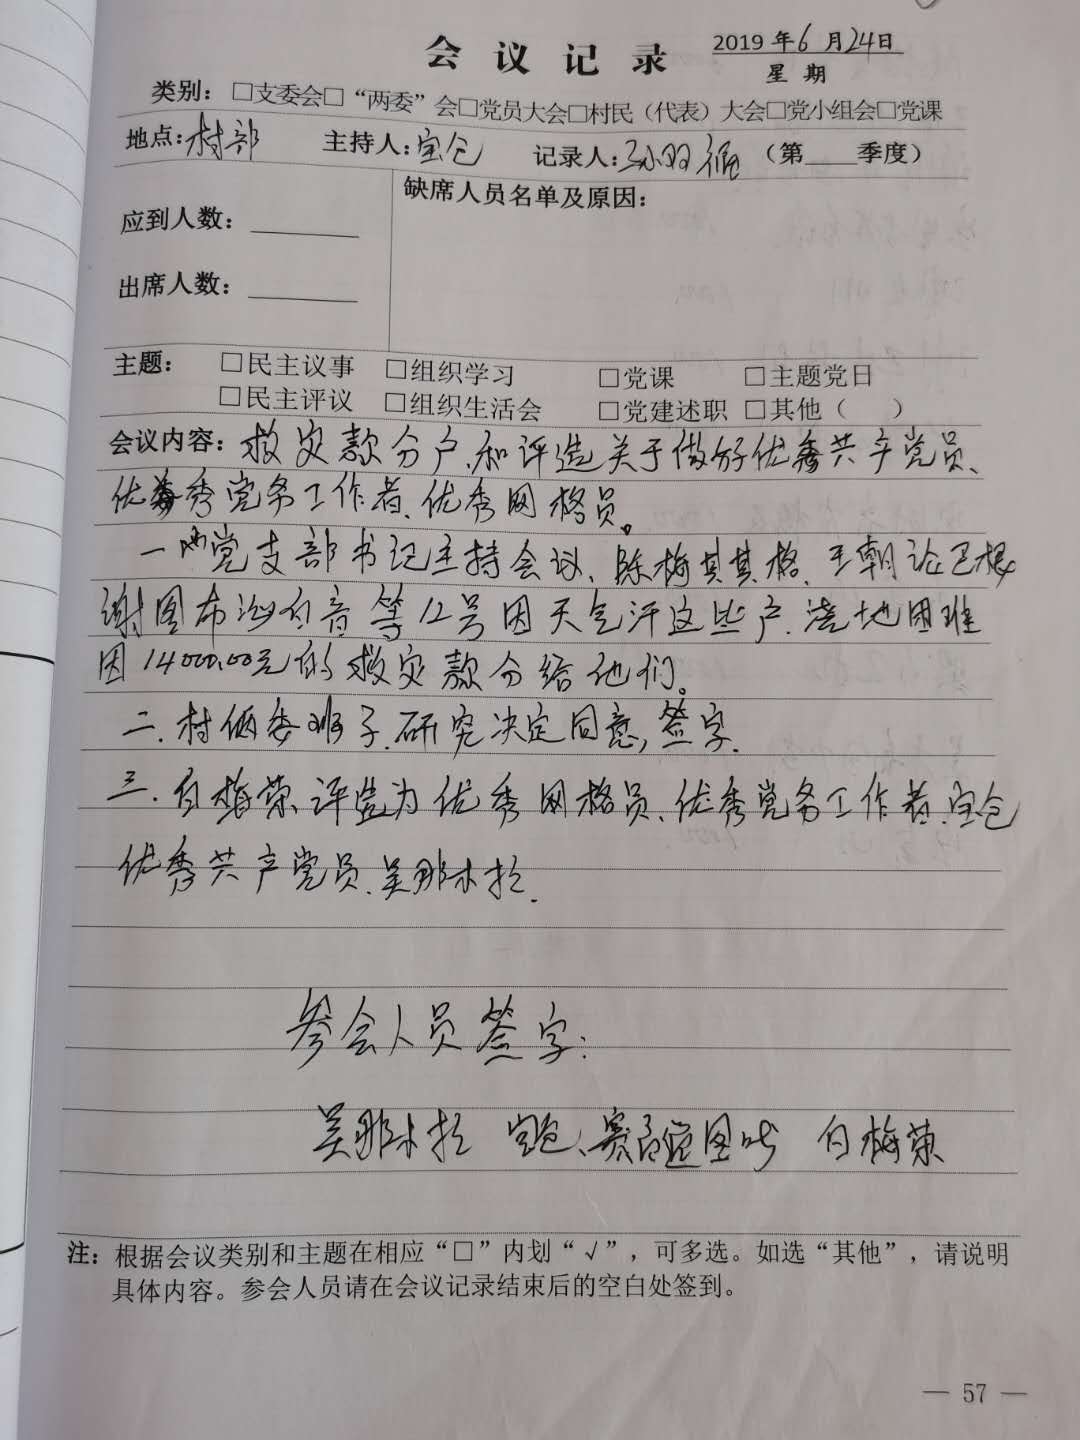 会议记录
2019年6月24日
星期
类别：□支委会□“两委”会□党员大会□村民（代表）大会□党小组会□党课
地点：村部 主持人：宝仓 记录人：孙双福 （第____季度）
应到人数：
缺席人员名单及原因：
出席人数：
主题： □民主议事 □组织学习 □党课 □主题党日
□民主评议 □组织生活会 □党建述职 □其他（ ）
会议内容：救灾款分户、和评选关于做好优秀共产党员、
优秀党务工作者、优秀网格员。
一、党支部书记主持会议、陈梅其其格、王朝论巴根
谢图布 白音等12号因天气汗这些户、浇地困难
因14000.00元的救灾款分给他们。
二、村俩委班子、研究决定同意，签字.
三、白梅荣、评选为优秀网格员、优秀党务工作者、宝仓
优秀共产党员、吴那木拉.
参会人员签字：
吴那木拉 宝仓、 白梅荣
注：根据会议类别和主题在相应“□”内划“√”，可多选。如选“其他”，请说明
具体内容。参会人员请在会议记录结束后的空白处签到。
— 57 —